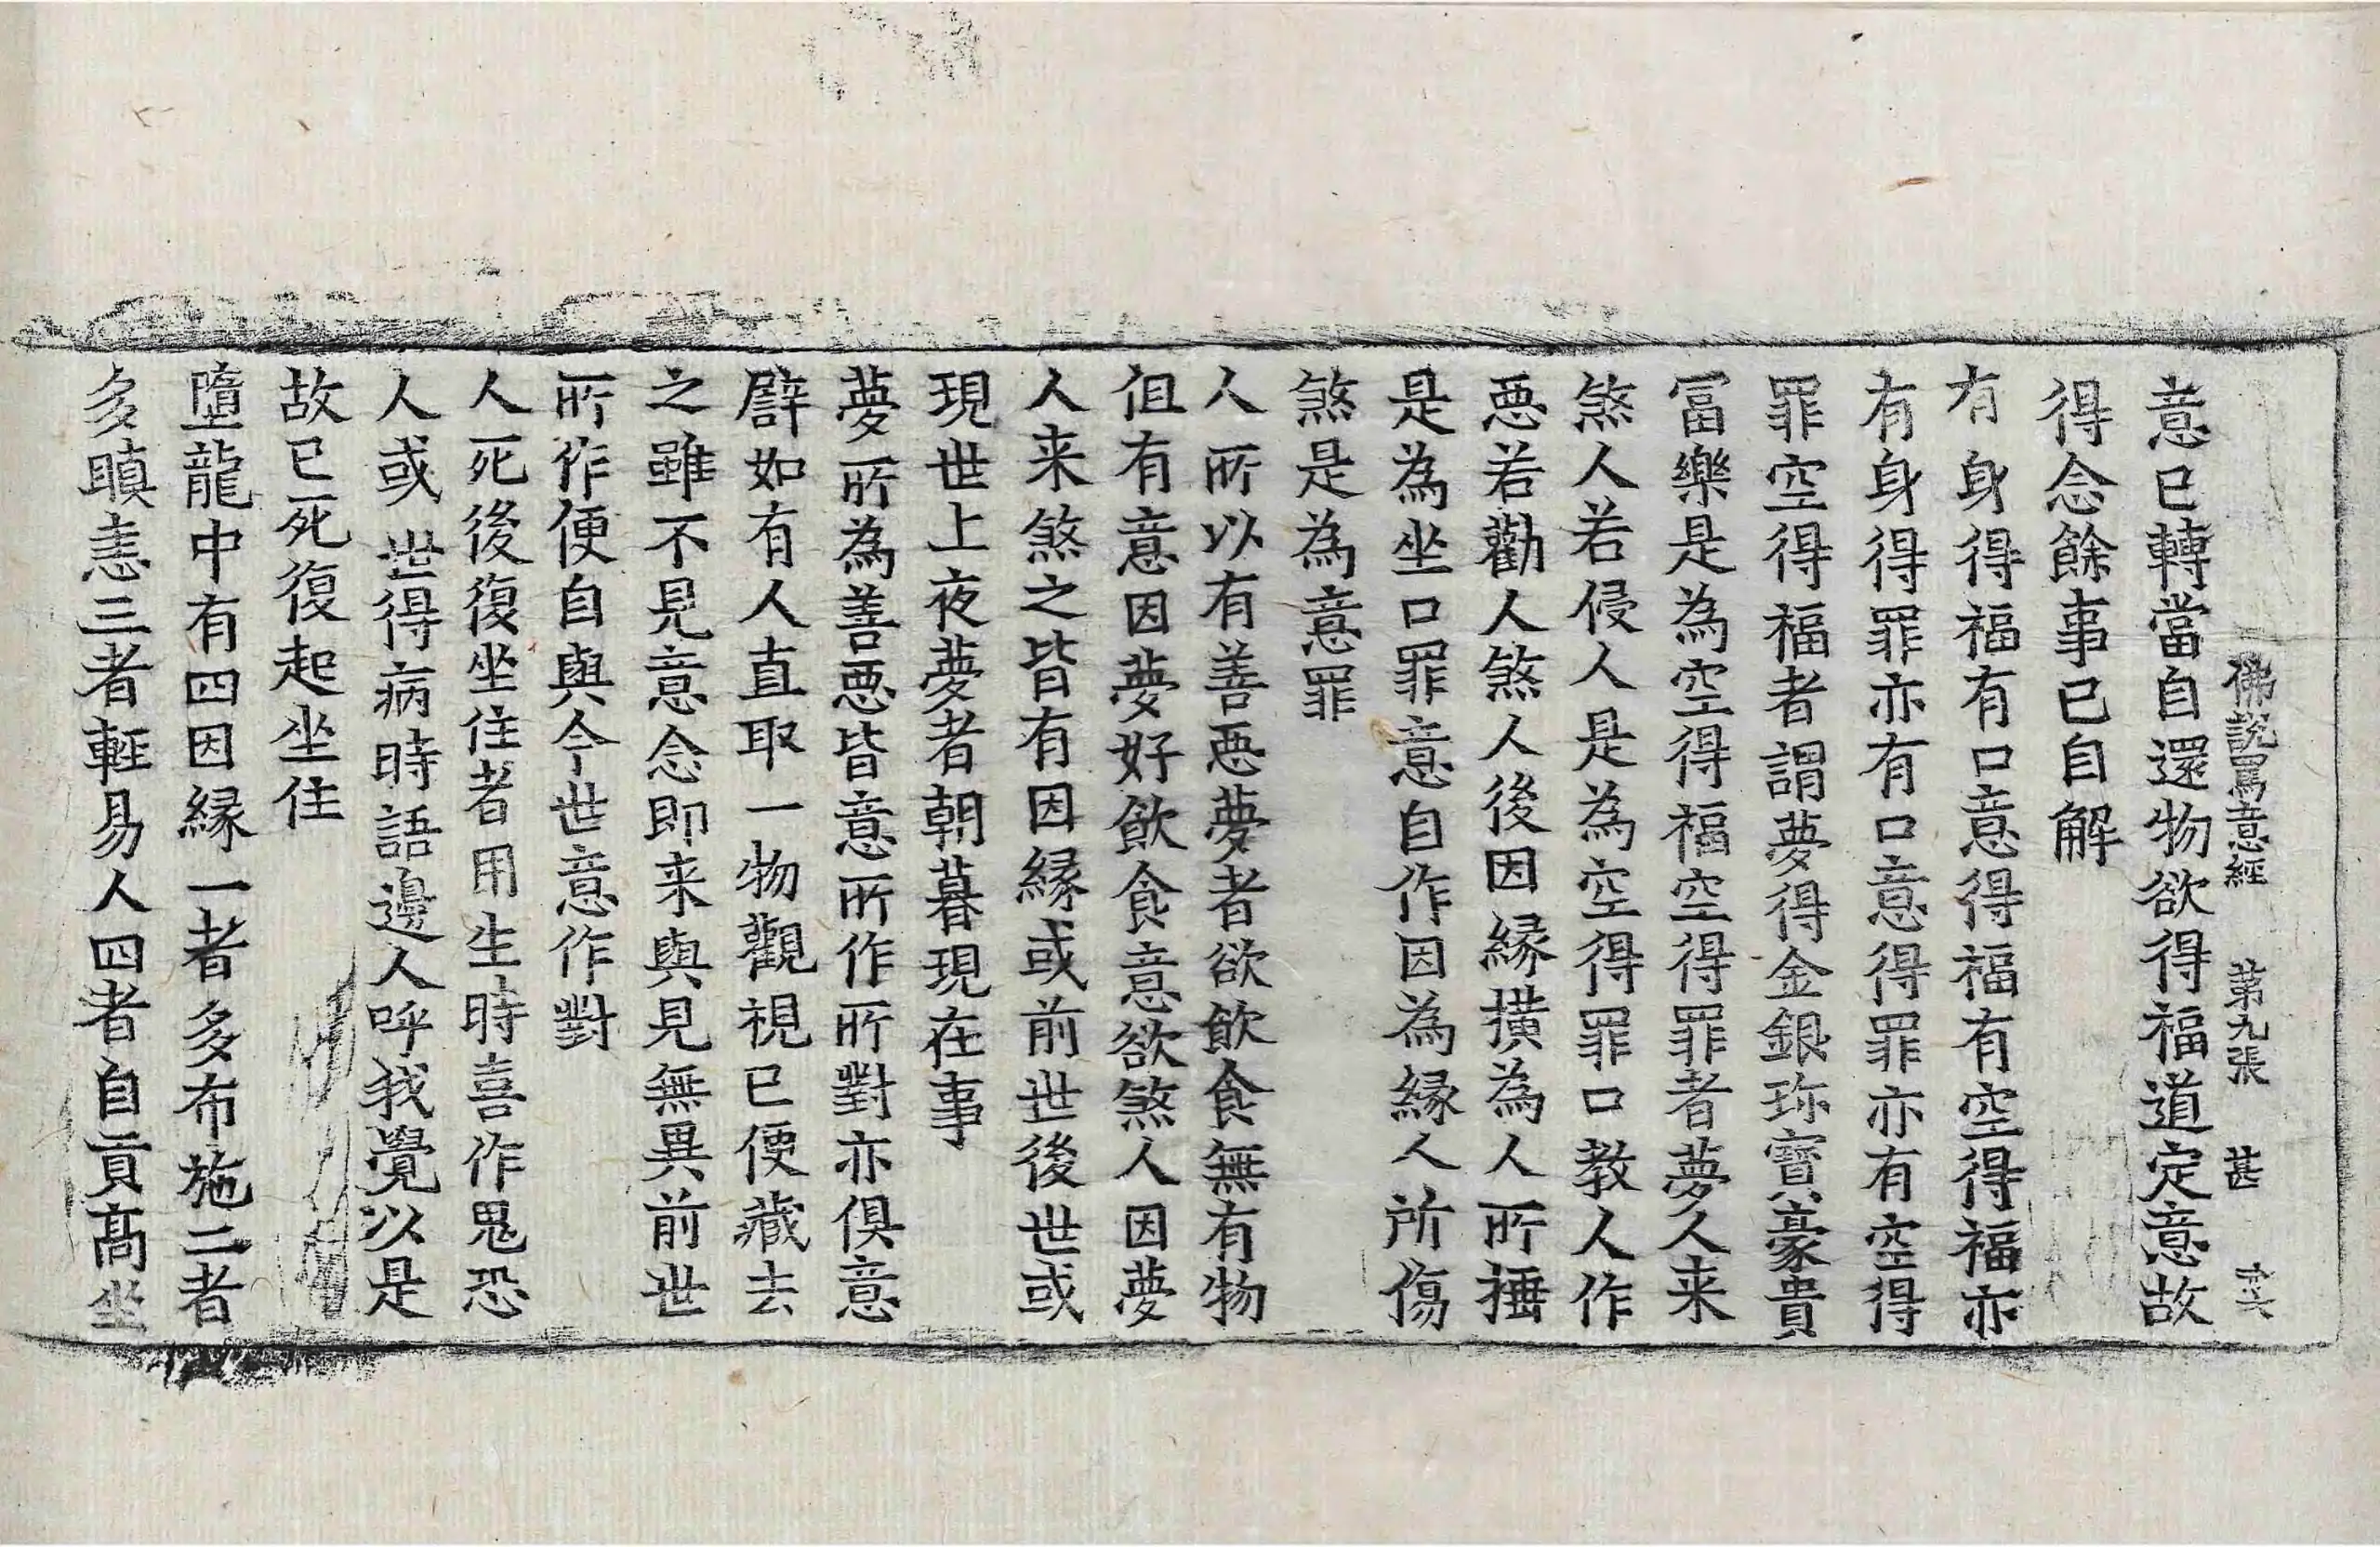 佛說罵意經 第九張 甚
意已轉當自還物欲得福道定意故
得念餘事已自解
有身得福有口意得福有空得福亦
有身得罪亦有口意得罪亦有空得
罪空得福者謂夢得金銀珎寶豪貴
冨樂是為空得福空得罪者夢人来
煞人若侵人是為空得罪口教人作
惡若勸人煞人後因緣橫為人所捶
是為坐口罪意自作因為緣人所傷
煞是為意罪
人所以有善惡夢者欲飲食無有物
但有意因夢好飲食意欲煞人因夢
人来煞之皆有因緣或前世後世或
現世上夜夢者朝暮現在事
夢所為善惡皆意所作所對亦俱意
譬如有人直取一物觀視已便藏去
之雖不見意念即来與見無異前世
所作便自與今世意作對
人死後復坐住者用生時喜作鬼恐
人或世得病時語邊人呼我覺以是
故已死復起坐住
墮龍中有四因緣一者多布施二者
多瞋恚三者輕易人四者自貢高坐